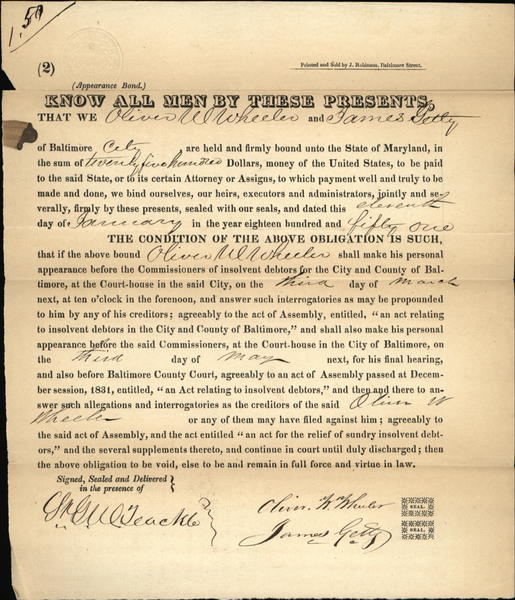 1.50
(2)
Printed and Sold by J. Robinson, Baltimore Street.
(Appearance Bond.)
KNOW ALL MEN BY THESE PRESENTS,
THAT WE Oliver W Wheeler and James Getty
of Baltimore City are held and firmly bound unto the State of Maryland, in
the sum of twenty five hundred Dollars, money of the United States, to be paid
to the said State, or to its certain Attorney or Assigns, to which payment well and truly to be
made and done, we bind ourselves, our heirs, executors and administrators, jointly and se-
verally, firmly by these presents, sealed with our seals, and dated this eleventh
day of January in the year eighteen hundred and fifty one
THE CONDITION OF THE ABOVE OBLIGATION IS SUCH,
that if the above bound Oliver W Wheeler shall make his personal
appearance before the Commissioners of insolvent debtors for the City and County of Bal-
timore, at the Court-house in the said City, on the third day of March
next, at ten o'clock in the forenoon, and answer such interrogatories as may be propounded
to him by any of his creditors; agreeably to the act of Assembly, entitled, "an act relating
to insolvent debtors in the City and County of Baltimore," and shall also make his personal
appearance before the said Commissioners, at the Court-house in the City of Baltimore, on
the third day of May next, for his final hearing,
and also before Baltimore County Court, agreeably to an act of Assembly passed at Decem-
ber session, 1831, entitled, "an Act relating to insolvent debtors," and then and there to an-
swer such allegations and interrogatories as the creditors of the said Oliver W
Wheeler or any of them may have filed against him; agreeably to
the said act of Assembly, and the act entitled "an act for the relief of sundry insolvent debt-
ors," and the several supplements thereto, and continue in court until duly discharged; then
the above obligation to be void, else to be and remain in full force and virtue in law.
Signed, Sealed and Delivered
in the presence of
Teackle
Oliver W Wheeler SEAL.
James Getty SEAL.